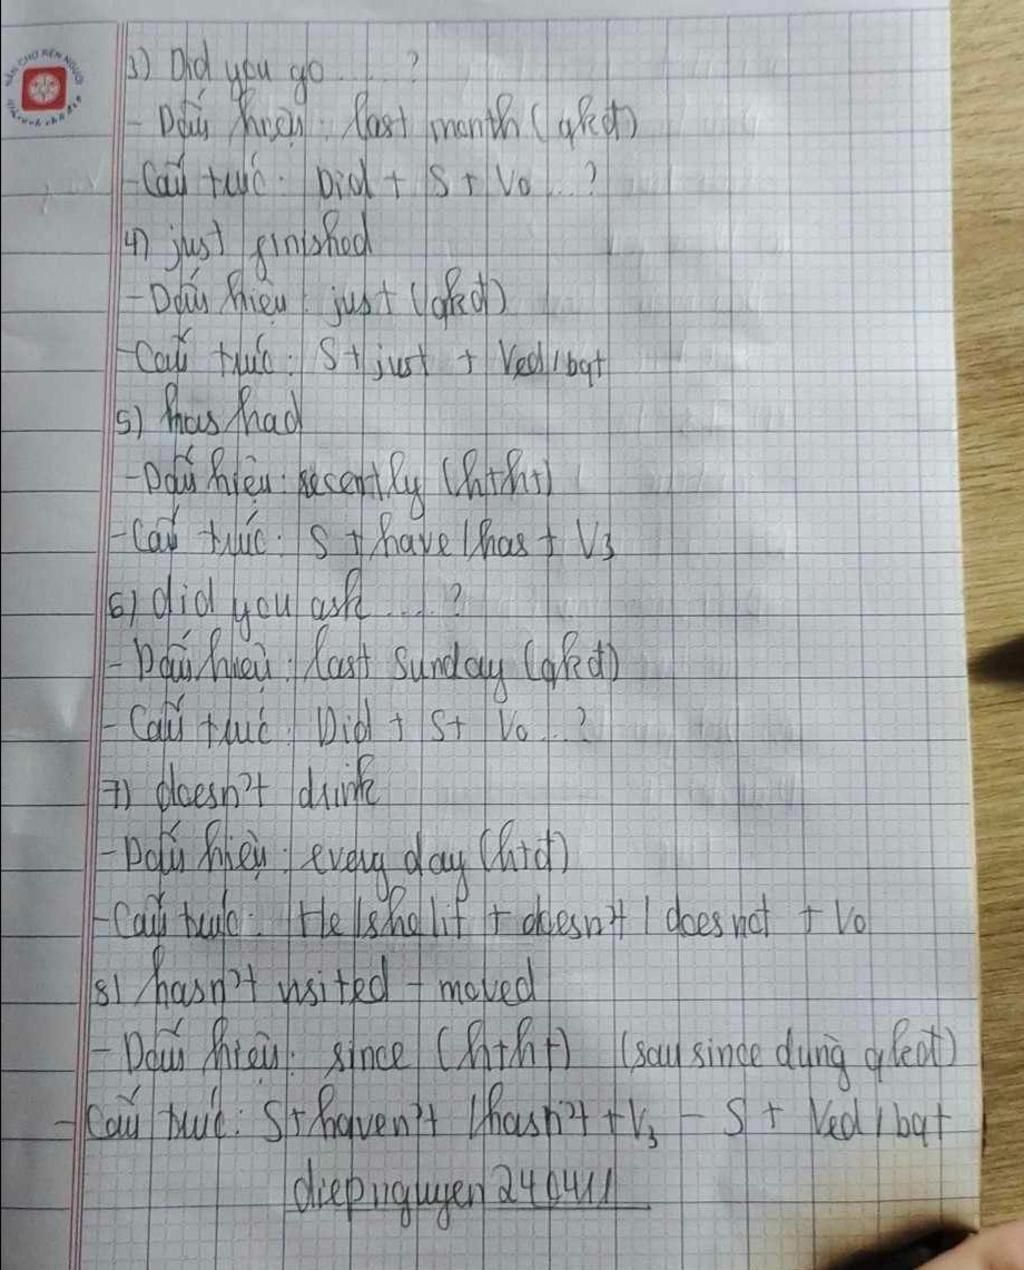 3) Did you go....?
- Dấu hiệu: last month (qkđ)
- Cấu trúc: Did + S + Vo...?
4) just finished
- Dấu hiệu: just (qkđ)
- Cấu trúc: S + just + Ved/bqt
5) has had
- Dấu hiệu: recently (htht)
- Cấu trúc: S + have/has + V3
6) did you ask....?
- Dấu hiệu: last Sunday (qkđ)
- Cấu trúc: Did + S + Vo...?
7) doesn't drink
- Dấu hiệu: every day (htđ)
- Cấu trúc: He/she/it + doesn't/does not + Vo
8) hasn't visited - moved
- Dấu hiệu: since (htht) (sau since dùng qkđ)
- Cấu trúc: S + haven't/hasn't + V3 - S + Ved/bqt
diepnguyen240411